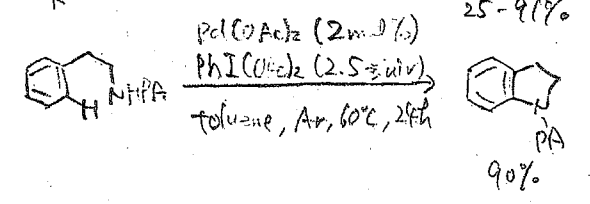 25-91%
Pd(OAc)2 (2mol%)
PhI(OAc)2 (2.5equiv)
H NHPA
toluene, Ar, 60°C, 24h
N
PA
90%